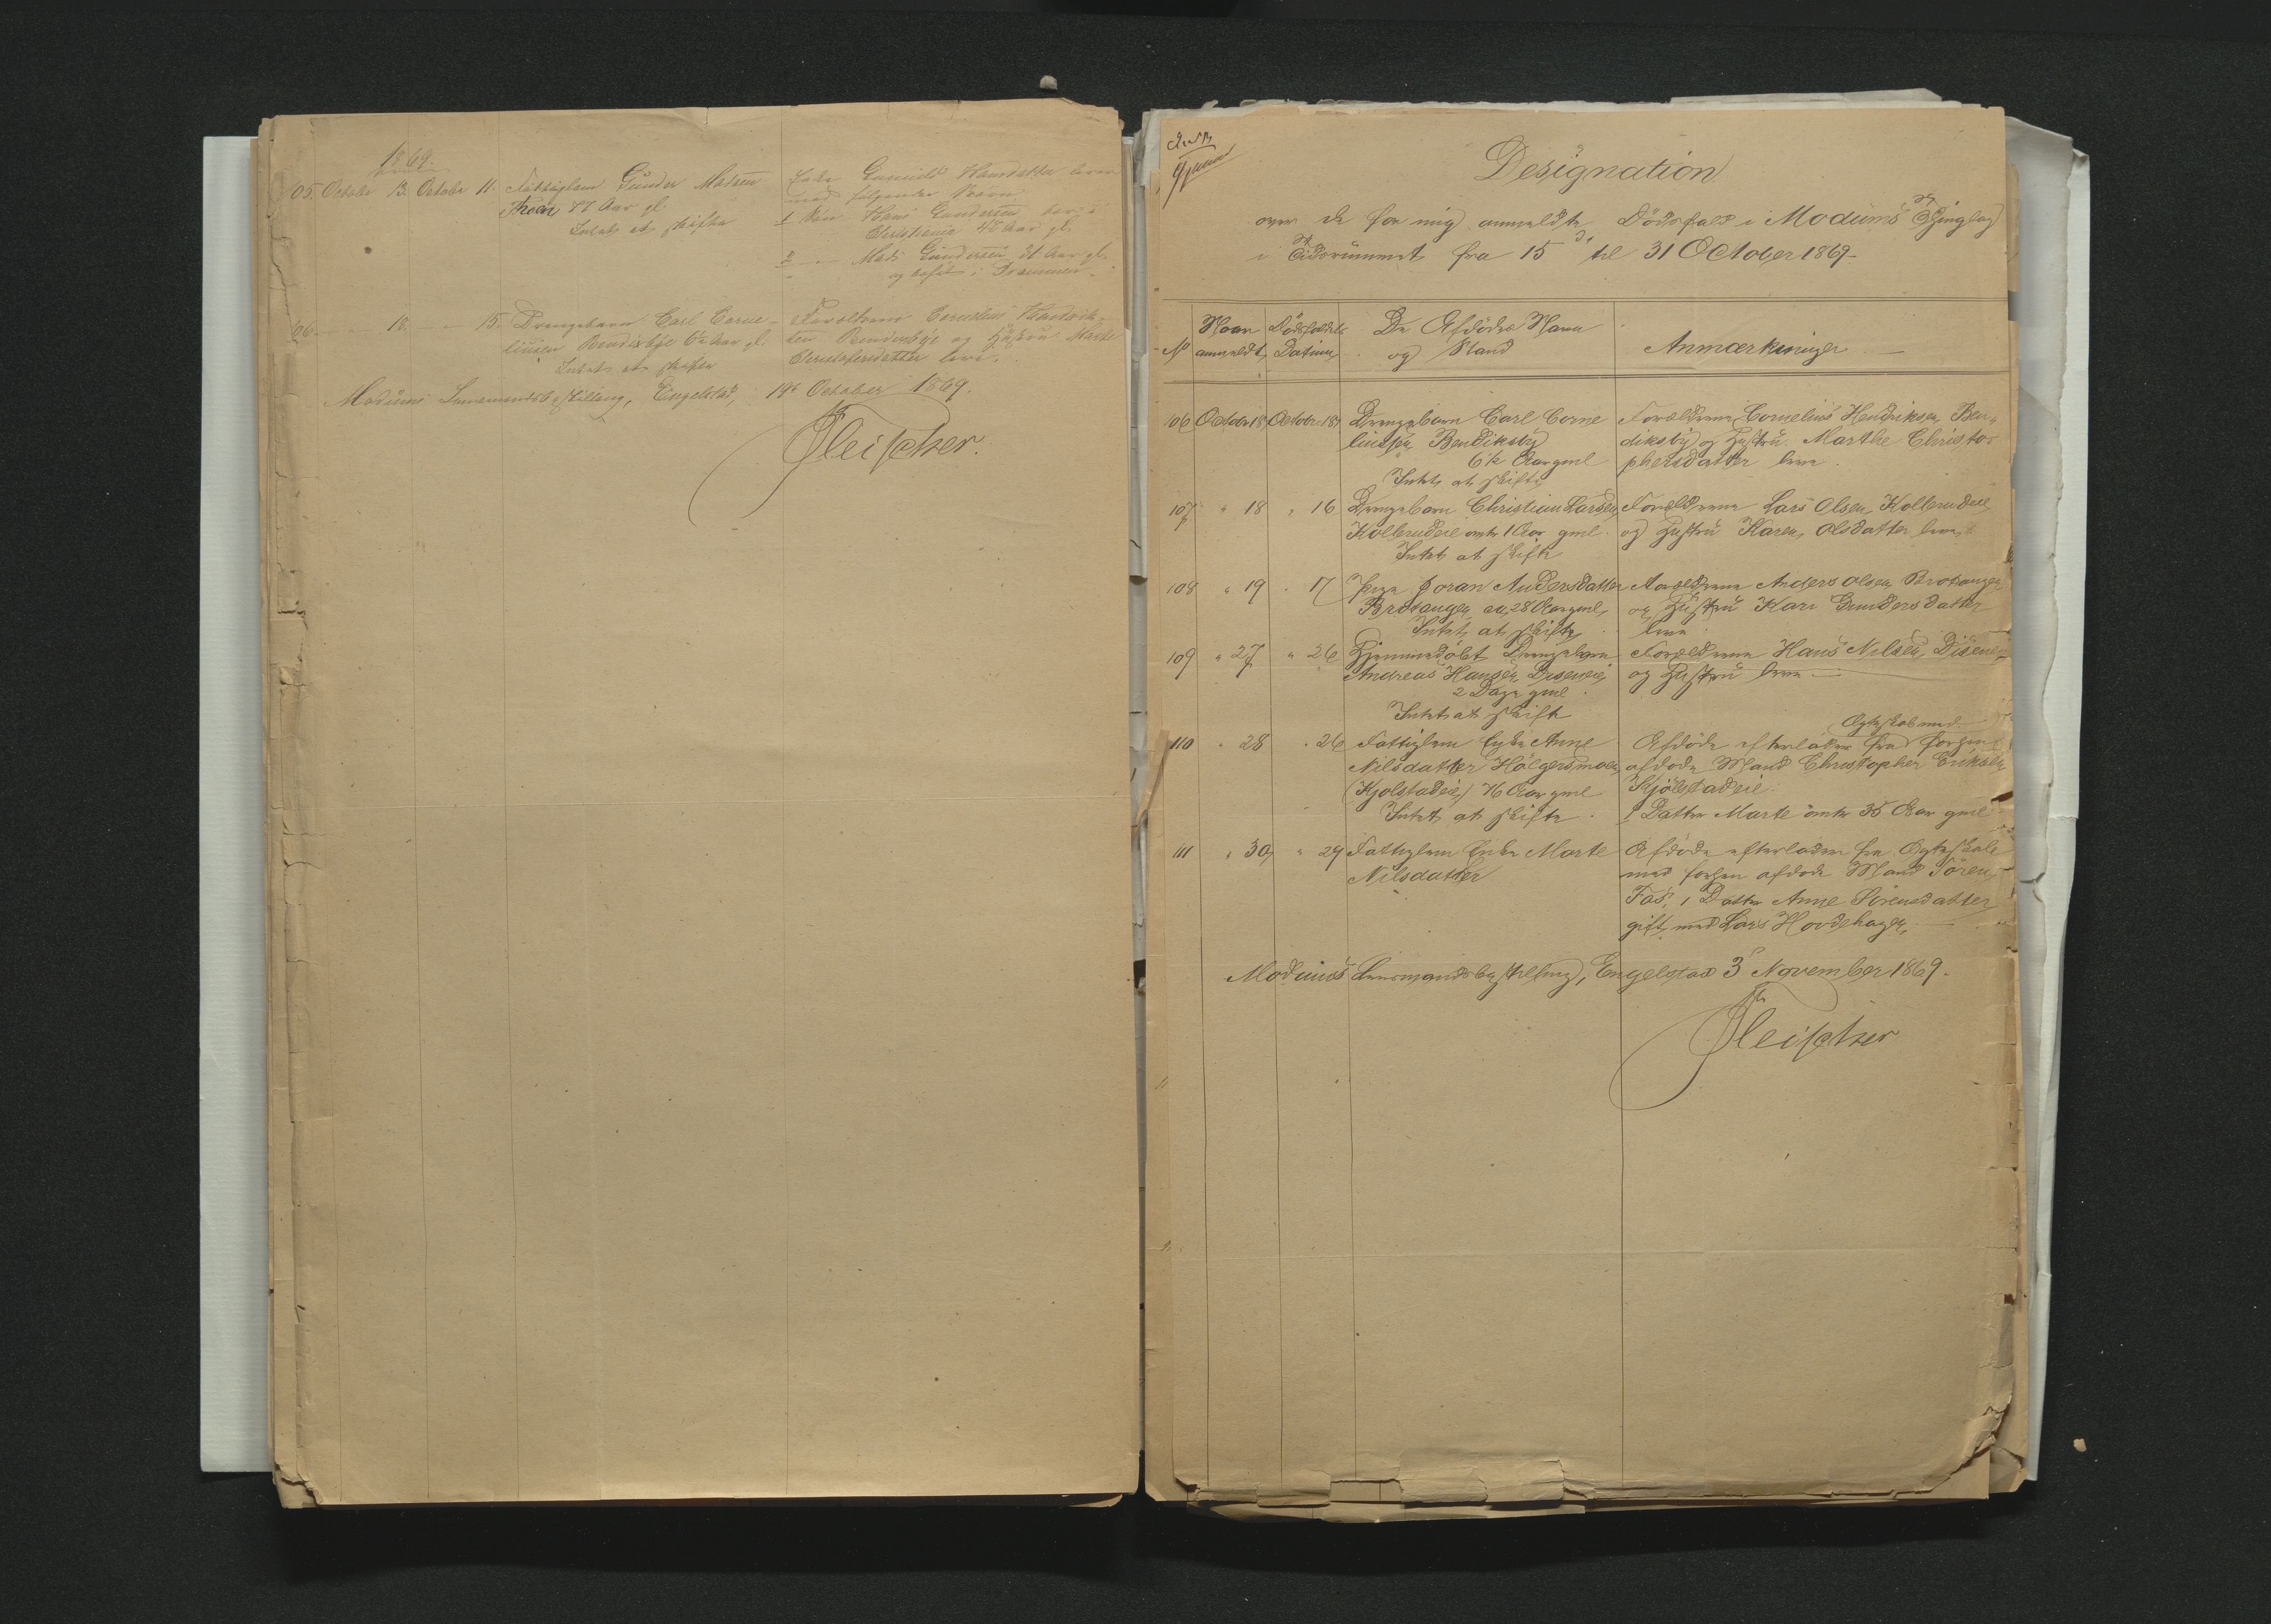 1869.
05. October 13. October 11. Fattiglem Gunder Madsen
Thoen 77 Aar gl.
Intet at skifte
Enke Gunnild Hansdatter lever
med følgende Børn
1 Søn Hans Gundersen bor i
Christiania 42 Aar gl.
2 — Mads Gundersen 31 Aar gl.
og bosat i Drammen.
106 — 18. — 15. Drengebarn Carl Corne-
liusen Bendiksbye 6½ Aar gl.
Intet at skifte
Forældrene Cornelius Hendrik-
sen Bendiksbye og Hustru Marthe
Christofersdatter leve.
Modums Lensmandsbestilling, Engelstad, 19de October 1869.
Fleischer.
Designation
over de for mig anmeldte Dödsfald i Modums Thinglag
i Tidsrummet fra 15 til 31 October 1869.
No
Naar anmeldt
Dödsfaldets Datum
De Afdödes Navn
og Stand
Anmærkninger
106 October 18 October 18
Drengebarn Carl Corne
liussen Bendiksby
6½ Aar gml
Intet at skifte
Forældrene Cornelius Hendriksen Ben-
diksby og Hustru Marthe Christo-
phersdatter leve.
107 " 18 " 16 Drengebarn Christian Larsen
Kolberudeie omtr 1 Aar gml
Intet at skifte
Forældrene Lars Olsen Kolberudeie
og Hustru Karen Olsdatter leve
108 " 19 " 17 Pige Joran Andersdatter
Brotanger, ca 28 Aar gml,
Intet at skifte
Forældrene Anders Olsen Brotanger
og Hustru Kari Gundersdatter
leve
109 " 27 " 26 Hjemmedöbt Drengebarn
Andreas Hansen Diseneie,
2 Dage gml
Intet at skifte
Forældrene Hans Nilsen Disene
og Hustru leve.
110 " 28 " 26 Fattiglem Enke Anne
Nilsdatter Holgersmoen
(Kjolstadeie) 76 Aar gml
Intet at skifte
Ægteskab med
Afdöde efterlader fra forhen
afdöde Mand Christopher Eriksen
Kjölstadeie.
1 Datter Marte omtr 35 Aar gml
111 " 30 " 29 Fattiglem Enke Marte
Nilsdatter
Afdöde efterlader fra Ægteskab
med forhen afdöde Mand Sören
Fos, 1 Datter Anne Sörensdatter
gift med Lars Hovdehagen.
Modums Lensmandsbestilling, Engelstad 3 November 1869.
Fleischer